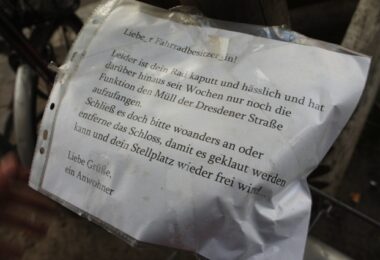 Liebe_r Fahrradbesitzer_in!
Leider ist dein Rad kaputt und hässlich und hat
darüber hinaus seit Wochen nur noch die
Funktion den Müll der Dresdener Straße
aufzufangen.
Schließ es doch bitte woanders an oder
entferne das Schloss, damit es geklaut werden
kann und dein Stellplatz wieder frei wird.
Liebe Grüße,
ein Anwohner